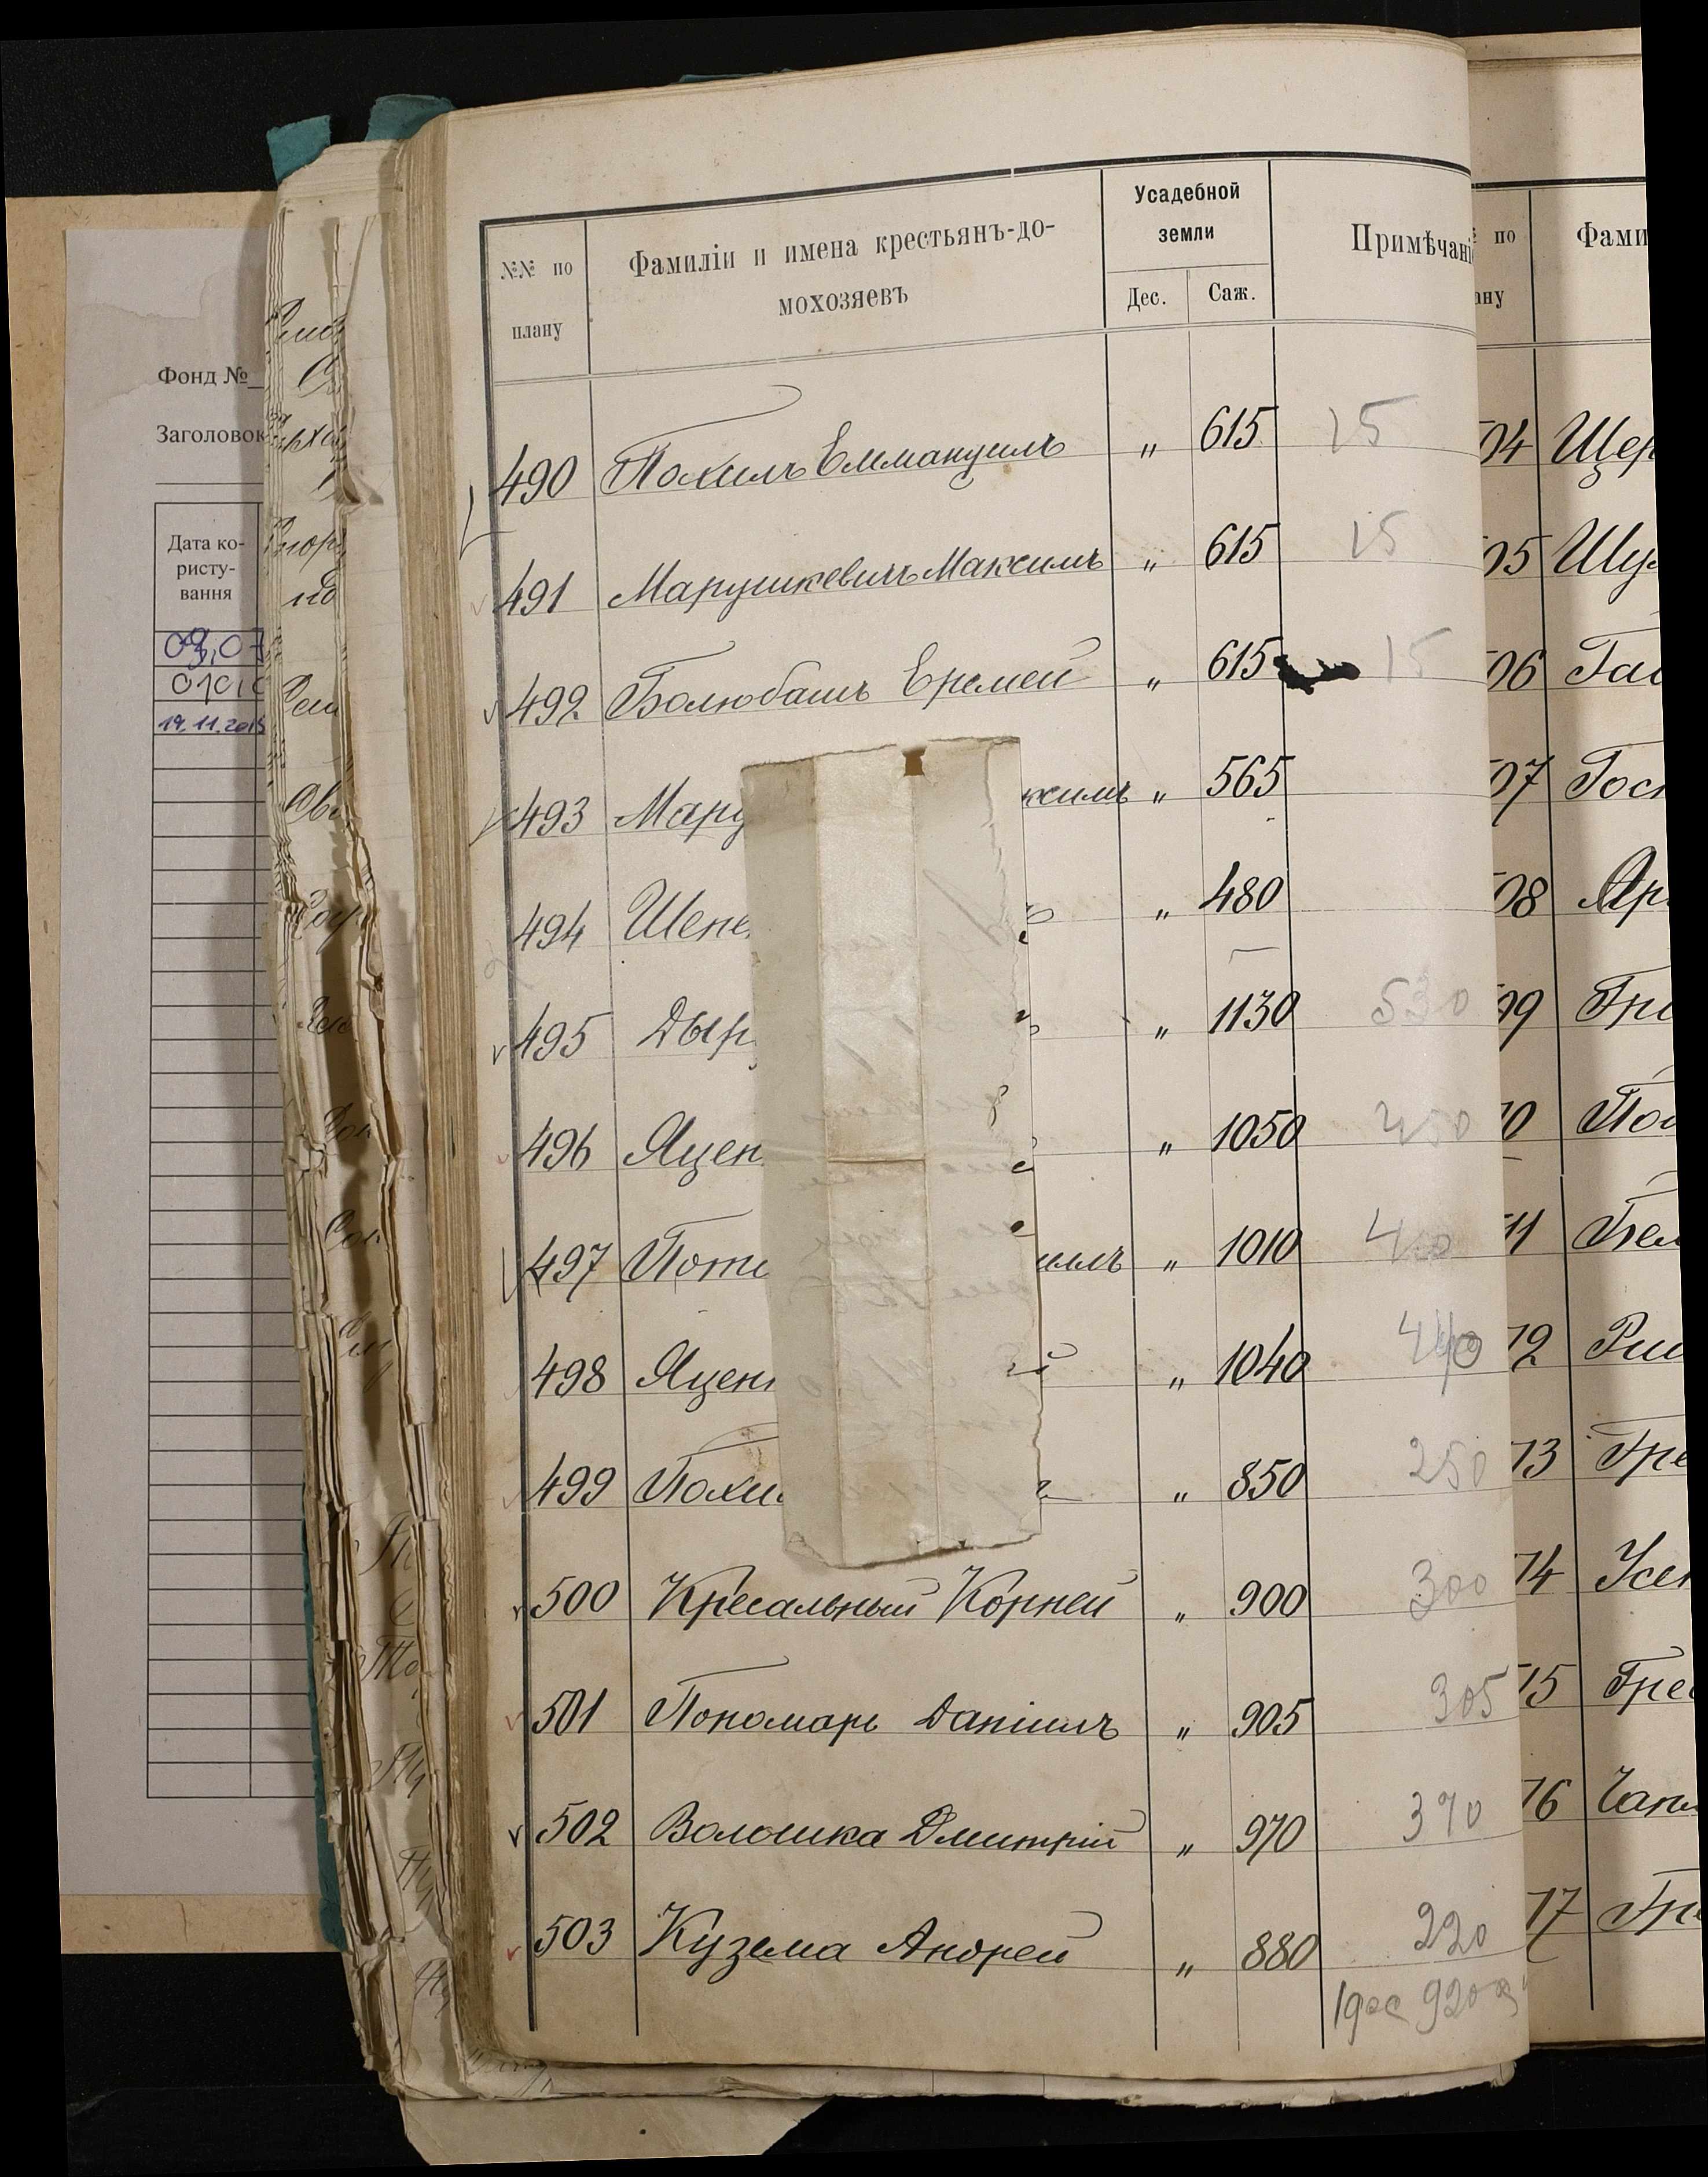 Фонд №
Заголовок
Дата ко-
ристу-
вання
19.11.2015
№№ по
плану
Фамиліи и имена крестьянъ-до-
мохозяевъ
Усадебной
земли
Дес. Саж.
Примѣчані
490 Похилъ Еммануилъ " 615 15
491 Марушкевичъ Максимъ " 615 15
492 Болюбашъ Еремей " 615 15
493 Мару ксимъ " 565
494 Шепе ъ " 480
495 Дыр ъ " 1130 530
496 Яцен " 1050 450
497 Поти илъ " 1010 410
498 Яцен й " 1040 440
499 Похи " 850 250
500 Кресальный Корней " 900 300
501 Пономарь Даніилъ " 905 305
502 Волошка Дмитрій " 970 370
503 Кузема Андрей " 880 220
1 дес 920
по
ану
Фами
04 Щер
05 Шу
06 Га
07 Гос
08 Яр
09 Гри
10 По
11 Бел
12 Ри
13 Гре
14 Усе
15 Гре
16 Чап
17 Гри